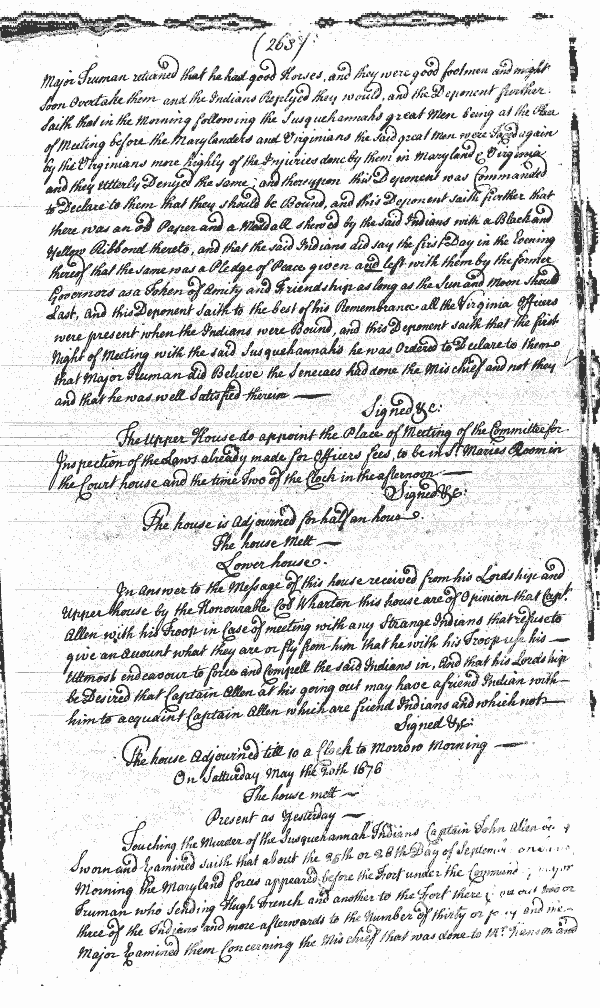 (263):
Major Truman returned that he had good Horses, and they were good footmen and might
soon Overtake them and the Indians Replyed they would, and the Deponent further
Saith that in the Morning following the Susquehannahs great Men being at the Place
of Meeting before the Marylanders and Virginians the said great Men were Taxed again
by the Virginians more highly of the Injuries done by them in Maryland & Virginia
and they Utterly Denyed the same, and thereupon this Deponent was Commanded
to Declare to them that they should be Bound, and this Deponent saith further that
there was an old Paper and a Medall shewed by the said Indians with a Black and
Yellow Ribbond thereto, and that the said Indians did say the first Day in the Evening
thereof that the same was a Pledge of Peace given and left with them by the former
Governors as a Token of Amity and Friendship as long as the Sun and Moon should
Last, And this Deponent Saith to the best of his Remembrance all the Virginia Officers
were present when the Indians were Bound, and this Deponent saith that the first
Night of Meeting with the said Susquehannahs he was Ordered to Declare to them
that Major Truman did Believe the Senecaes had done the Mischief and not they
and that he was well Satisfied therein —
Signed &c:
The Upper House do appoint the Place of Meeting of the Committee for
Inspection of the Laws already made for Officers fees, to be in St Maries Room in
the Court house and the time Two of the Clock in the afternoon —
Signed &c:
The house is Adjourned for half an hour.
The house Mett —
Lower house.
In Answer to the Message of this house received from his Lordship and
Upper house by the Honourable Coll Wharton this house are of Opinion that Capt.
Allen with his Troop in Case of meeting with any Strange Indians that refuse to
give an Account what they are or fly from him that he with his Troop use his —
Utmost endeavour to force and Compell the said Indians in, And that his Lordship
be Desired that Captain Allen at his going out may have a friend Indian with —
him to acquaint Captain Allen which are friend Indians and which not —
Signed &c:
The house Adjourned till 10 a Clock to Morrow Morning —
On Satturday May the 20th 1676
The house mett —
Present as Yesterday —
Touching the Murder of the Susquehannah Indians Captain John Allen
Sworn and Examined saith that about the 25th or 26th Day of
Morning the Maryland forces appeared before the Fort under the
Truman who sending Hugh French and another to the Fort there out two or
three of the Indians and more afterwards to the Number of thirty or
Major Examined them Concerning the Mischief that was done to Mr Henson and